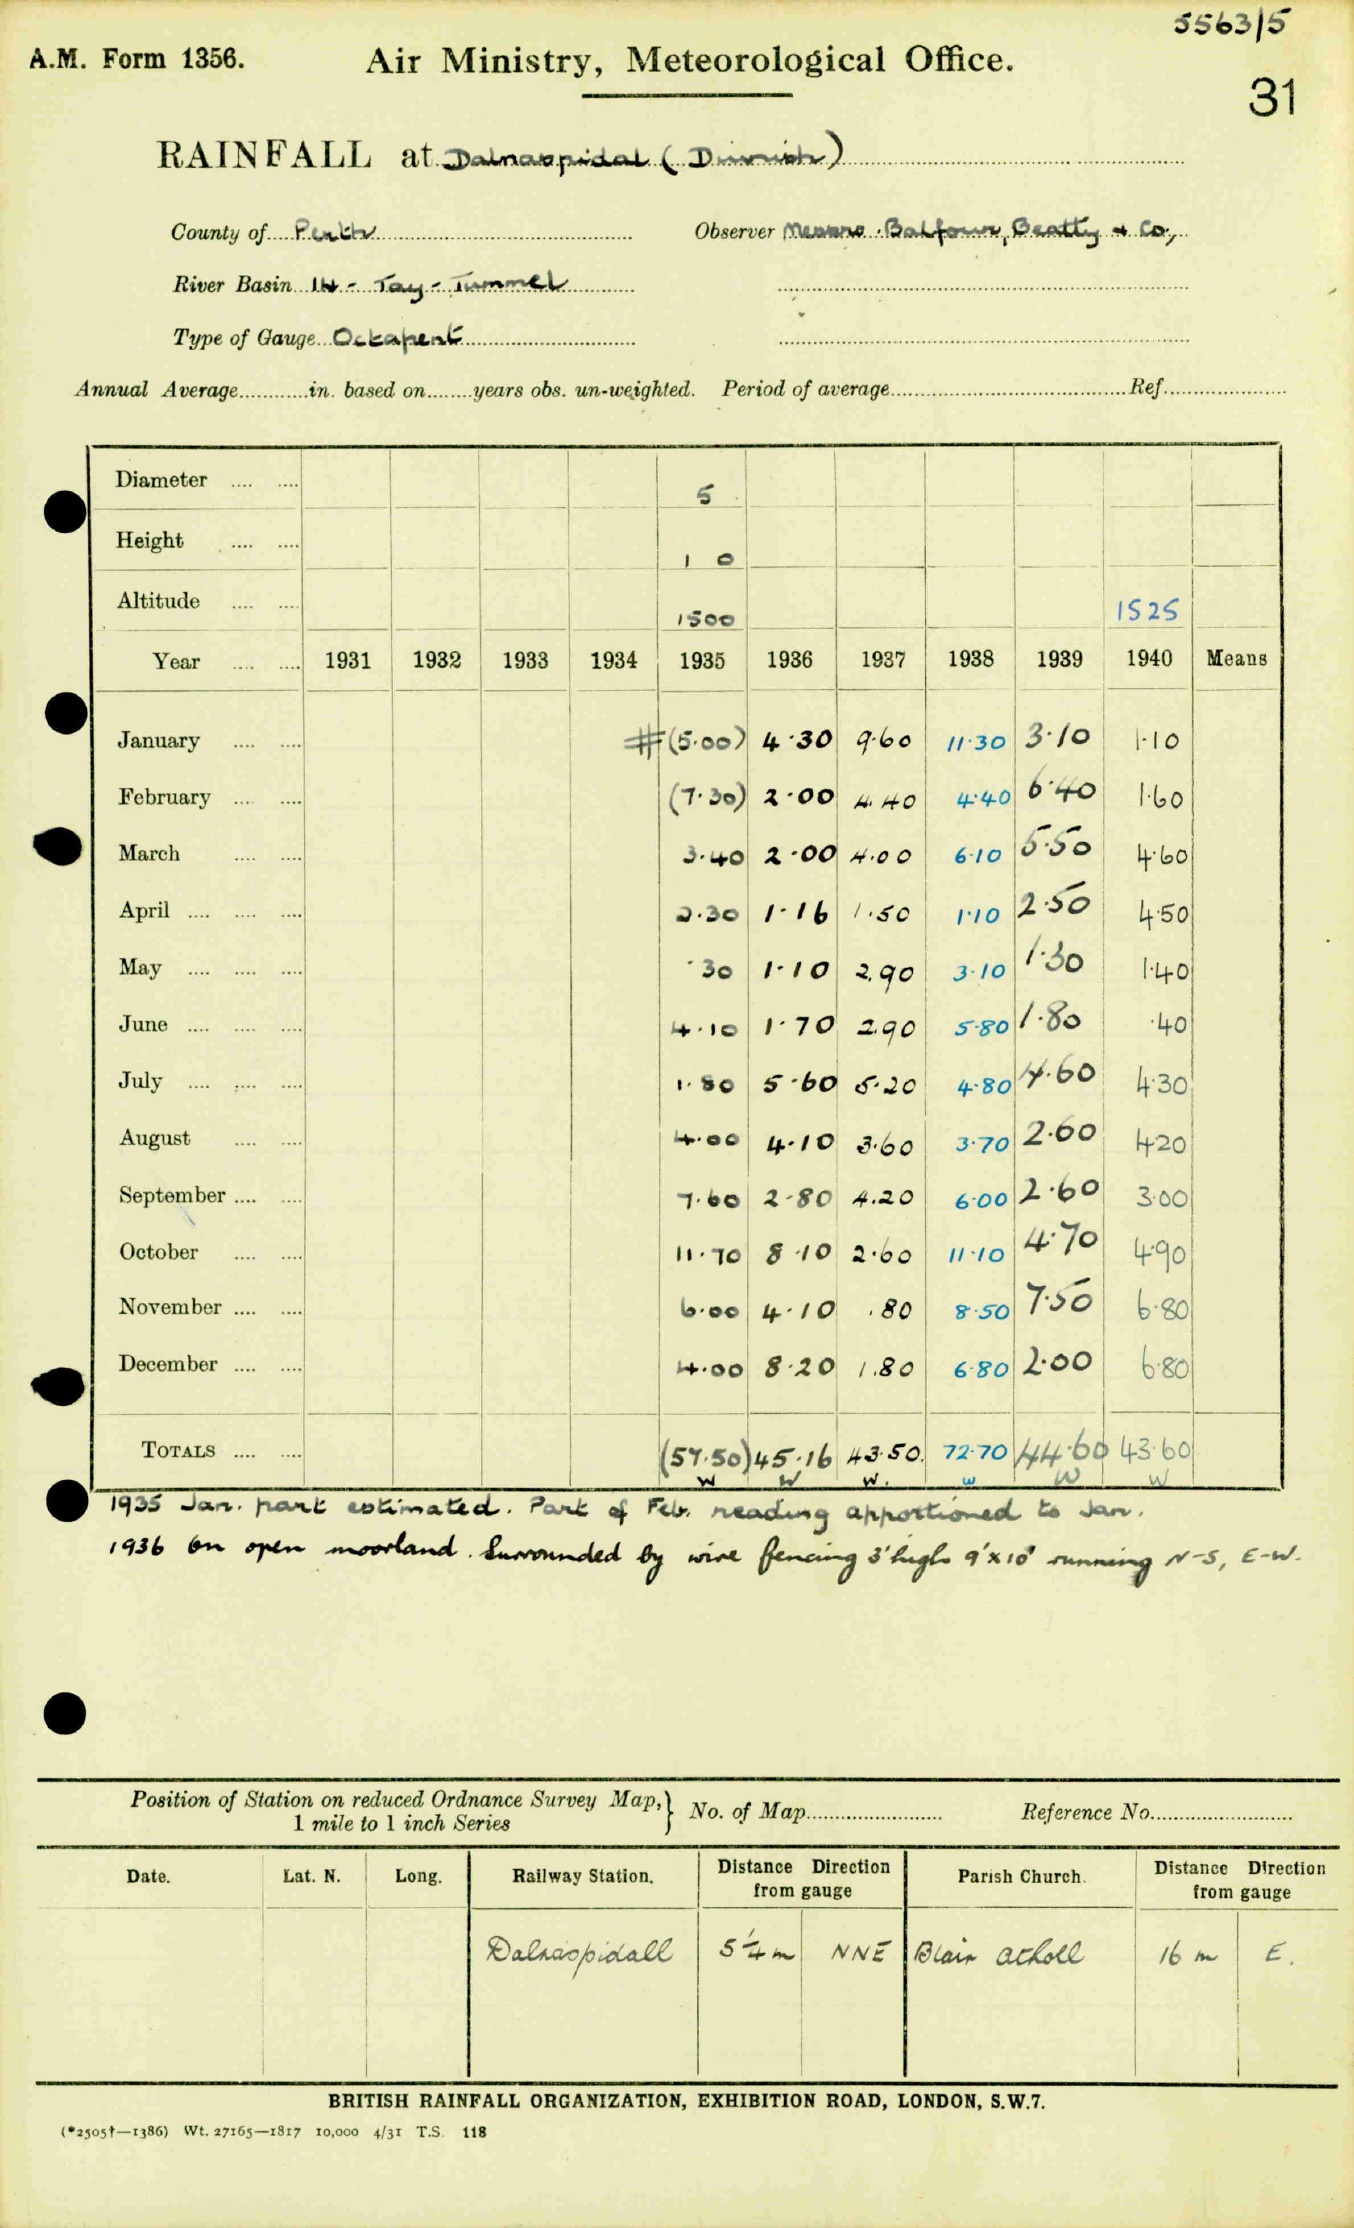 5563/5
A.M. Form 1356. Air Ministry, Meteorological Office.
31
RAINFALL at Dalnaspidal (
County of Perth Observer Messrs. Balfour, Beatty & Co,
River Basin 14 - Tay - Tummel
Type of Gauge Octapent
Annual Average............in. based on........years obs. un-weighted. Period of average................Ref................
Diameter .... .... 5
Height .... .... 1 0
Altitude .... .... 1500 1525
Year .... .... 1931 1932 1933 1934 1935 1936 1937 1938 1939 1940 Means
January .... .... #(5.00) 4.30 9.60 11.30 3.10 1.10
February .... .... (7.30) 2.00 4.40 4.40 6.40 1.60
March .... .... 3.40 2.00 4.00 6.10 5.50 4.60
April .... .... .... 2.30 1.16 1.50 1.10 2.50 4.50
May .... .... .... .30 1.10 2.90 3.10 1.30 1.40
June .... .... .... 4.10 1.70 2.90 5.80 1.80 .40
July .... .... .... 1.80 5.60 5.20 4.80 4.60 4.30
August .... .... 4.00 4.10 3.60 3.70 2.60 4.20
September .... .... 7.60 2.80 4.20 6.00 2.60 3.00
October .... .... 11.70 8.10 2.60 11.10 4.70 4.90
November .... .... 6.00 4.10 .80 8.50 7.50 6.80
December .... .... 4.00 8.20 1.80 6.80 2.00 6.80
TOTALS .... .... (57.50) 45.16 43.50. 72.70 44.60 43.60
W W W. W W W
1935 Jan. part estimated. Part of Feb. reading apportioned to Jan.
1936 On open moorland. Surrounded by wire fencing 3' high 9'x10' running N-S, E-W.
Position of Station on reduced Ordnance Survey Map,} No. of Map........................ Reference No.........................
1 mile to 1 inch Series
Date. Lat. N. Long. Railway Station. Distance Direction from gauge Parish Church. Distance Direction from gauge
Dalnaspidall 5¼m NNE Blair Atholl 16 m E.
BRITISH RAINFALL ORGANIZATION, EXHIBITION ROAD, LONDON, S.W.7.
(*2505†—1386) Wt. 27165—1817 10,000 4/31 T.S. 118